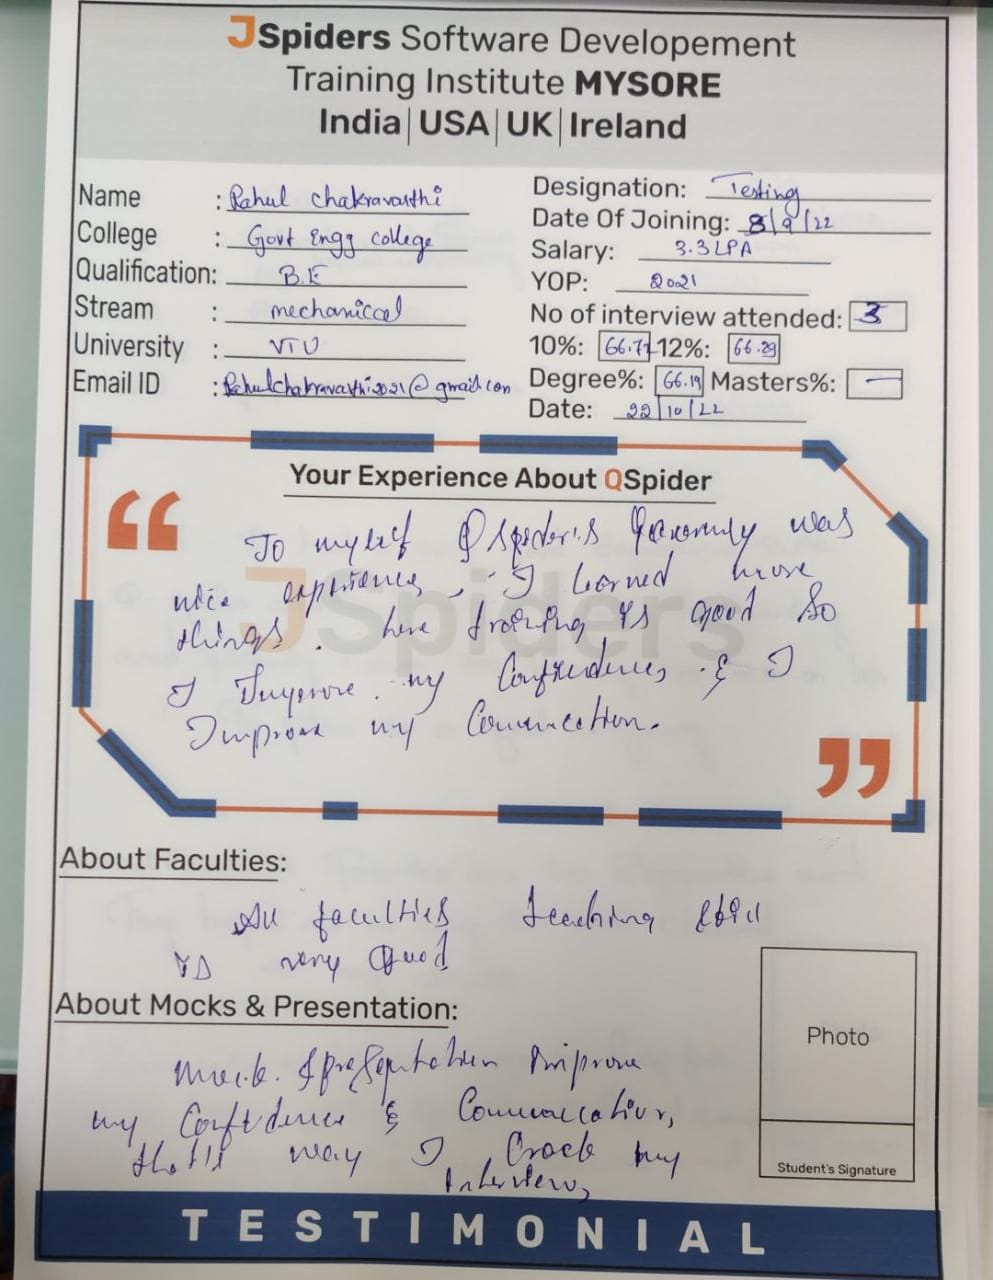 JSpiders Software Developement
Training Institute MYSORE
India|USA|UK|Ireland
Name : Rahul chakravarthi
College : Govt Engg college
Qualification: B.E
Stream : mechanical
University : VTU
Email ID : Rahulchakravarthi2021@gmail.com
Designation: Testing
Date Of Joining: 8/9/22
Salary: 3.3LPA
YOP: 2021
No of interview attended: 3
10%: 66.72 12%: 66.29
Degree%: 66.19 Masters%: —
Date: 22/10/22
Your Experience About QSpider
“
To myself QSpiders was
nice experience, I learned
things. here training is good So
I Improve my Confidence, & I
Improve my Communication.
JSpiders
”
About Faculties:
All faculties teaching skill
is very Good
About Mocks & Presentation:
Mock & presentation improve
my Confidence & Communication,
way I Crack my
Interview,
Photo
Student's Signature
TESTIMONIAL